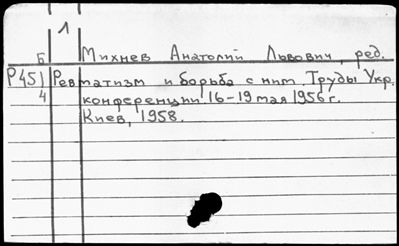 1
Б Михнев Анатолий Львович, ред.
Р451 Ревматизм и борьба с ним. Труды Укр.
4 конференции. 16-19 мая 1956 г.
Киев, 1958.